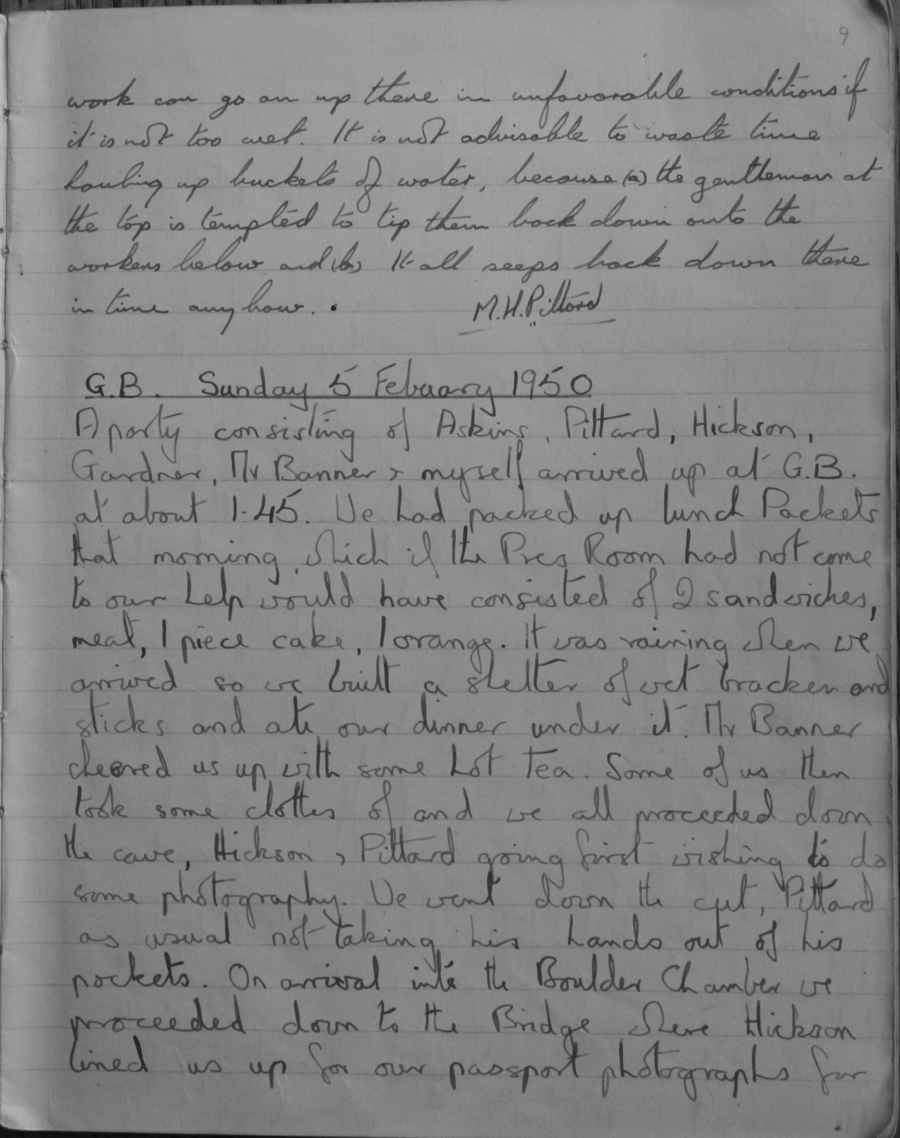 9
work can go on up there in unfavorable conditions if
it is not too wet. It is not advisable to waste time
hauling up buckets of water, because (a) the gentleman at
the top is tempted to tip them back down onto the
workers below and (b) It all seeps back down there
in time anyhow..
M.H.Pittard
G.B. Sunday 5 Febuary 1950
A party consisting of Askins, Pittard, Hickson,
Gardner, Mr Banner & myself arrived up at G.B.
at about 1.45. We had packed up lunch Packets
that morning which if the Preg Room had not come
to our help would have consisted of 2 sandwiches,
meat, 1 piece cake, 1 orange. It was raining when we
arrived so we built a shelter of wet bracken and
sticks and ate our dinner under it. Mr Banner
cheered us up with some hot tea. Some of us then
took some clothes of and we all proceeded down
the cave, Hickson & Pittard going first wishing to do
some photography. We went down the cut, Pittard
as usual not taking his hands out of his
pockets. On arrival into the Boulder Chamber we
proceeded down to the Bridge where Hickson
lined us up for our passport photographs for